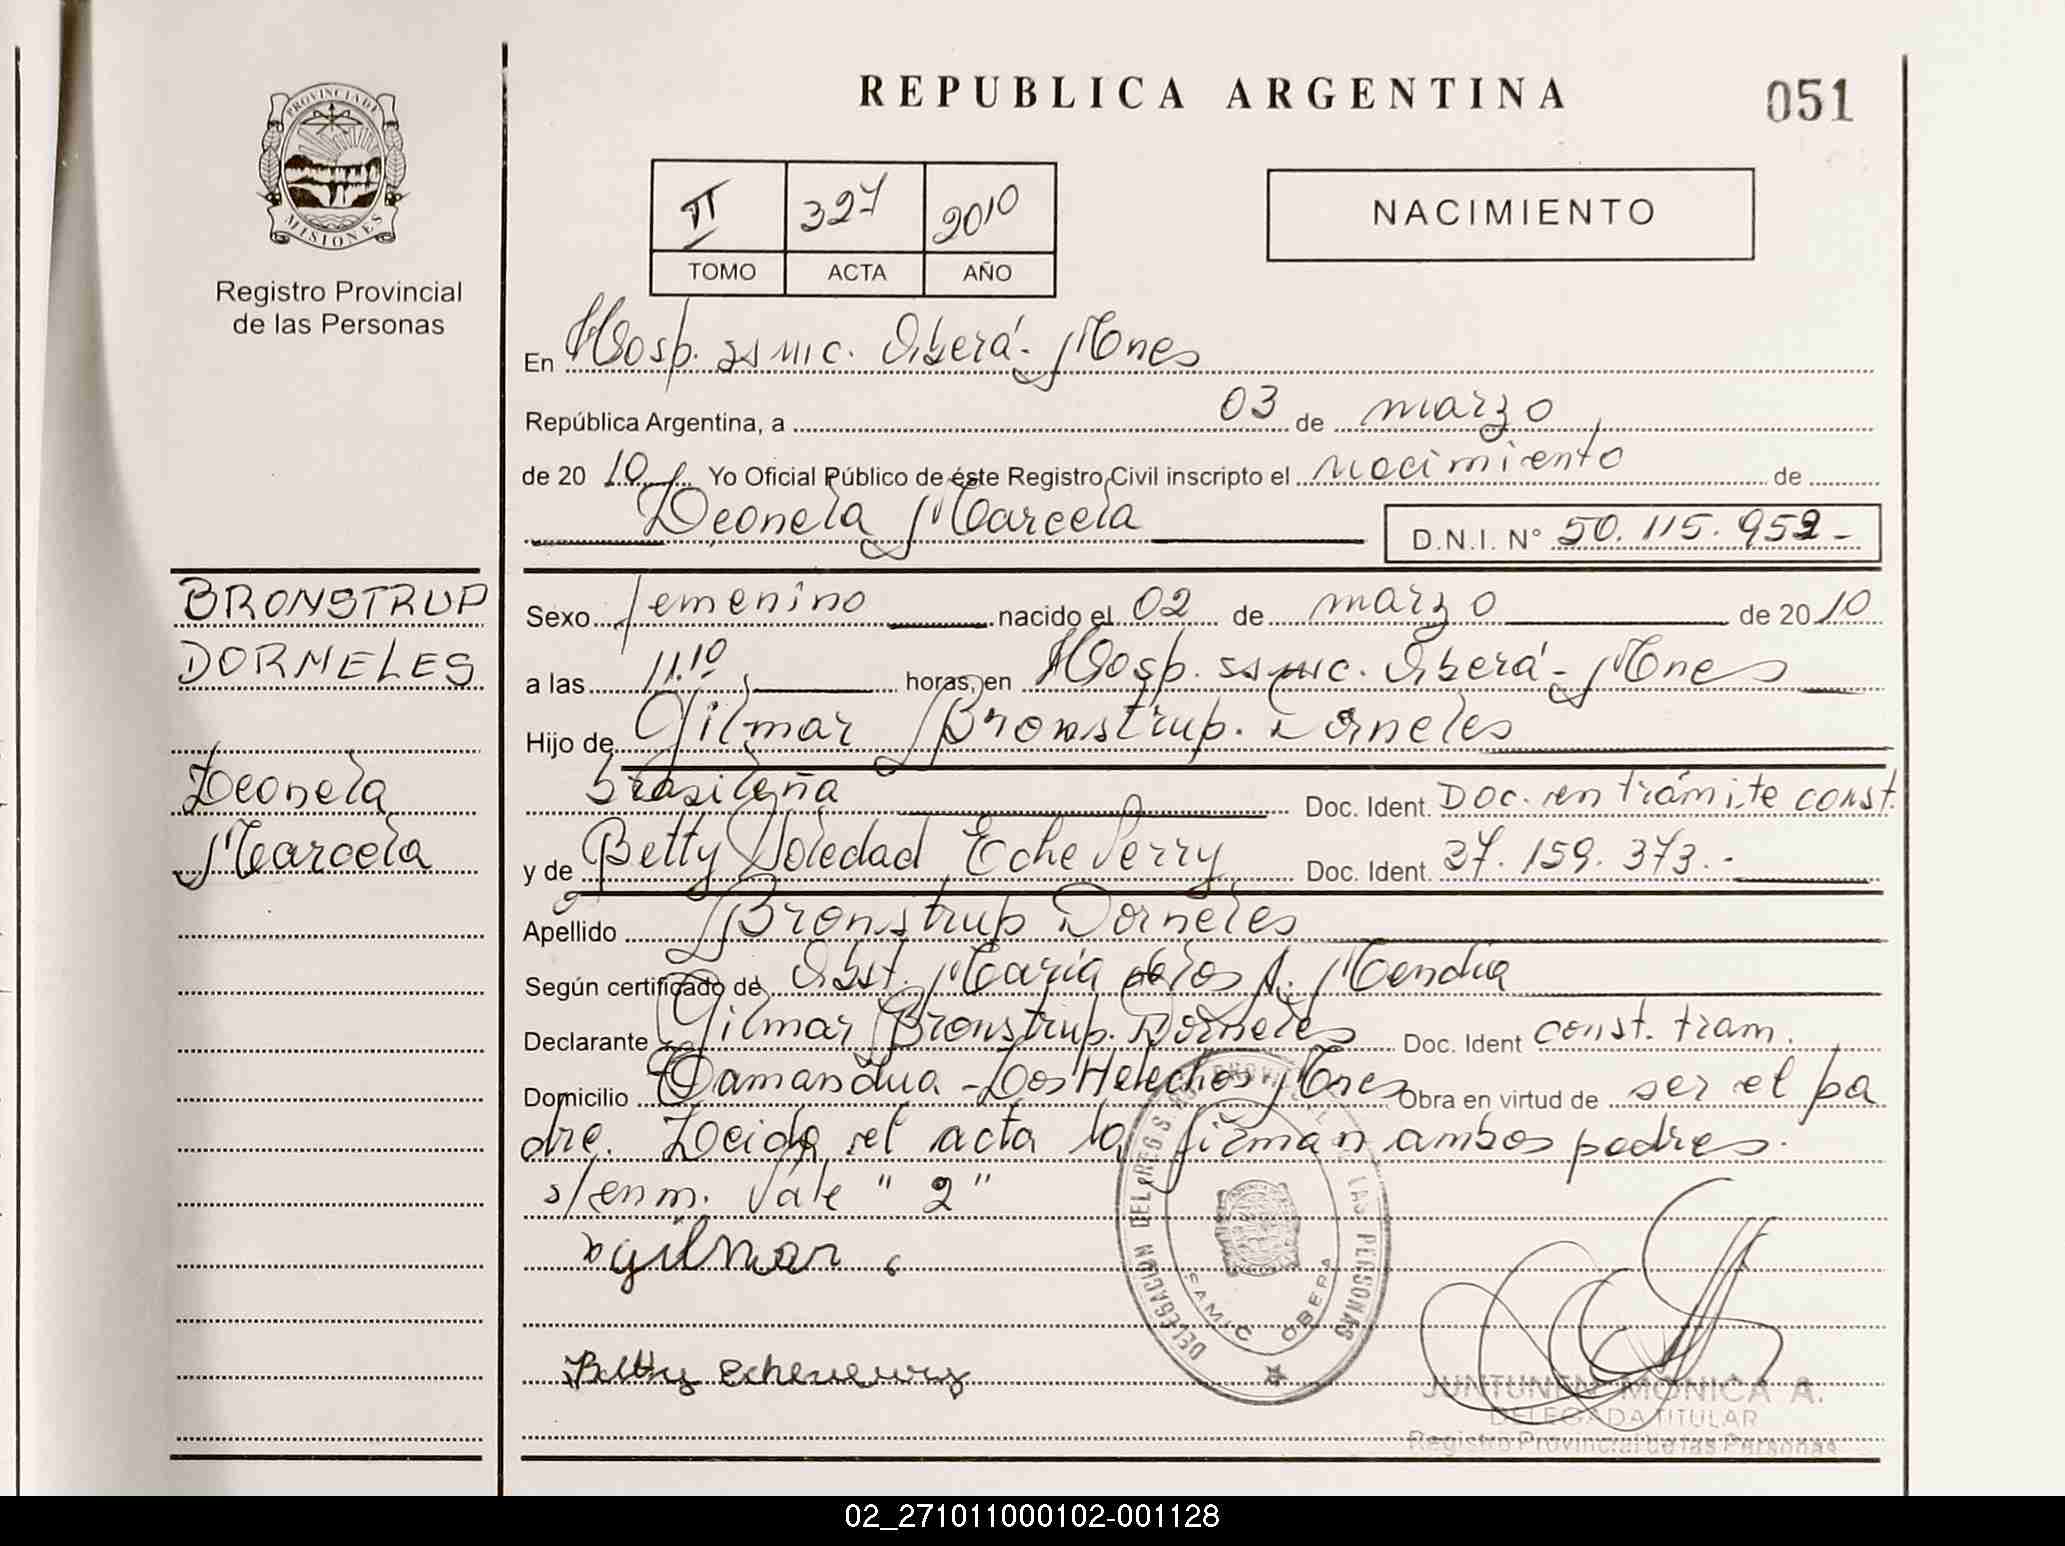 REPUBLICA ARGENTINA
051
PROVINCIA DE
MISIONES
Registro Provincial
de las Personas
II 327 2010
TOMO ACTA AÑO
NACIMIENTO
En Hosp. ssmic. Oberá - Mnes
República Argentina, a 03 de marzo
de 20 10 Yo Oficial Público de éste Registro Civil inscripto el nacimiento de
Leonela Marcela
D.N.I. N° 50.115.952-
BRONSTRUP
DORNELES
Leonela
Marcela
Sexo femenino nacido el 02 de marzo de 20 10
a las 11.10 horas, en Hosp. ssmic. Oberá - Mnes
Hijo de Gilmar Bronstrup. Dorneles
brasileña Doc. Ident. Doc. en trámite const.
y de Betty Soledad Echeverry Doc. Ident. 37.159.373.-
Apellido Bronstrup Dorneles
Según certificado de Obst. María de los A. Mendia
Declarante Gilmar Bronstrup. Dorneles Doc. Ident const. tram.
Domicilio Tamandua - Los Helechos Mnes Obra en virtud de ser el pa
dre. Leida el acta la firman ambos padres.
s/enm. Vale "2"
gilmar
Betty Echeverry
DELEGACION DEL REG. PROVINCIAL DE LAS PERSONAS
SAMIC OBERA
JUNTUNEN MONICA A.
DELEGADA TITULAR
Registro Provincial de las Personas
02_271011000102-001128